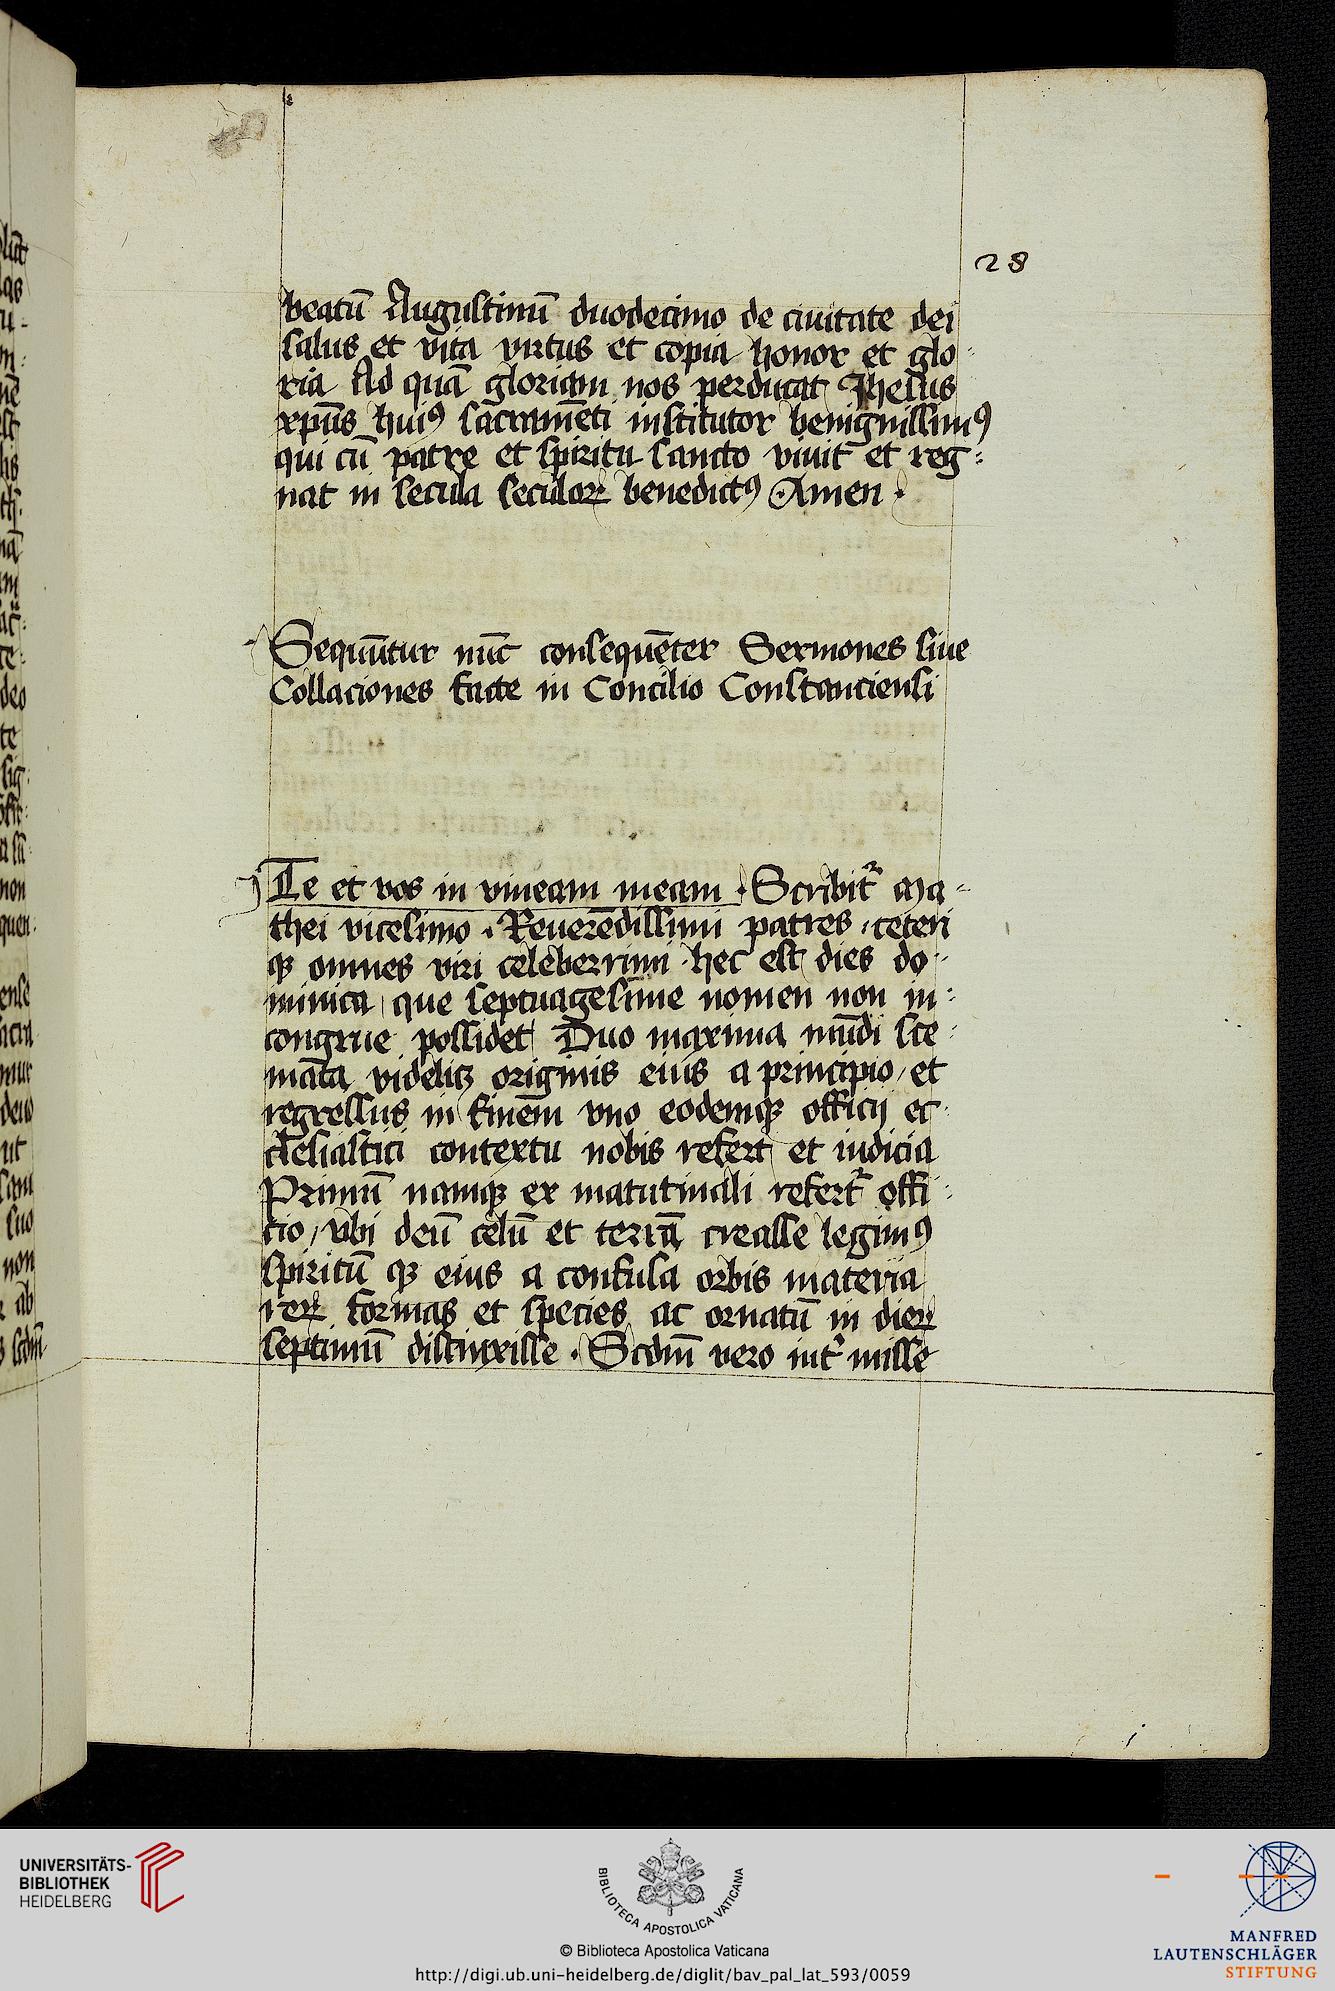 28
beatū Augustinū duodecimo de ciuitate dei
salus et vita virtus et copia honor et glo-
ria Ad quā gloriam nos perducat Jhesus
xpūs huiꝰ sacramēti institutor benignissimꝰ
qui cū patre et spiritu sancto viuit et reg-
nat in secula seculoꝝ benedictꝰ Amen .
Sequūtur nūc consequēter Sermones siue
Collaciones facte in Concilio Constanciensi
Ite et vos in vineam meam . Scribit᷑ Ma-
thei vicesimo . Reuerēdissimi patres ceteri
qꝫ omnes viri celeberrimi hec est dies do-
minica que septuagesime nomen non in-
congrue possidet Duo maxima mūdi sce-
mata videlicꝫ originis eius a principio et
regressus in finem vno eodemqꝫ officij ec-
clesiastici contextu nobis refert et iudicia
Primū namqꝫ ex matutinali refert᷑ offi-
cio / vbi deū celū et terrā creasse legimꝰ
spiritū qꝫ eius a confusa orbis materia
reꝝ formas et species ac ornatū in dieꝝ
septimū distinxisse . Scdm̄ vero int᷑ misse
UNIVERSITÄTS-
BIBLIOTHEK
HEIDELBERG
BIBLIOTECA APOSTOLICA VATICANA
© Biblioteca Apostolica Vaticana
http://digi.ub.uni-heidelberg.de/diglit/bav_pal_lat_593/0059
MANFRED
LAUTENSCHLÄGER
STIFTUNG